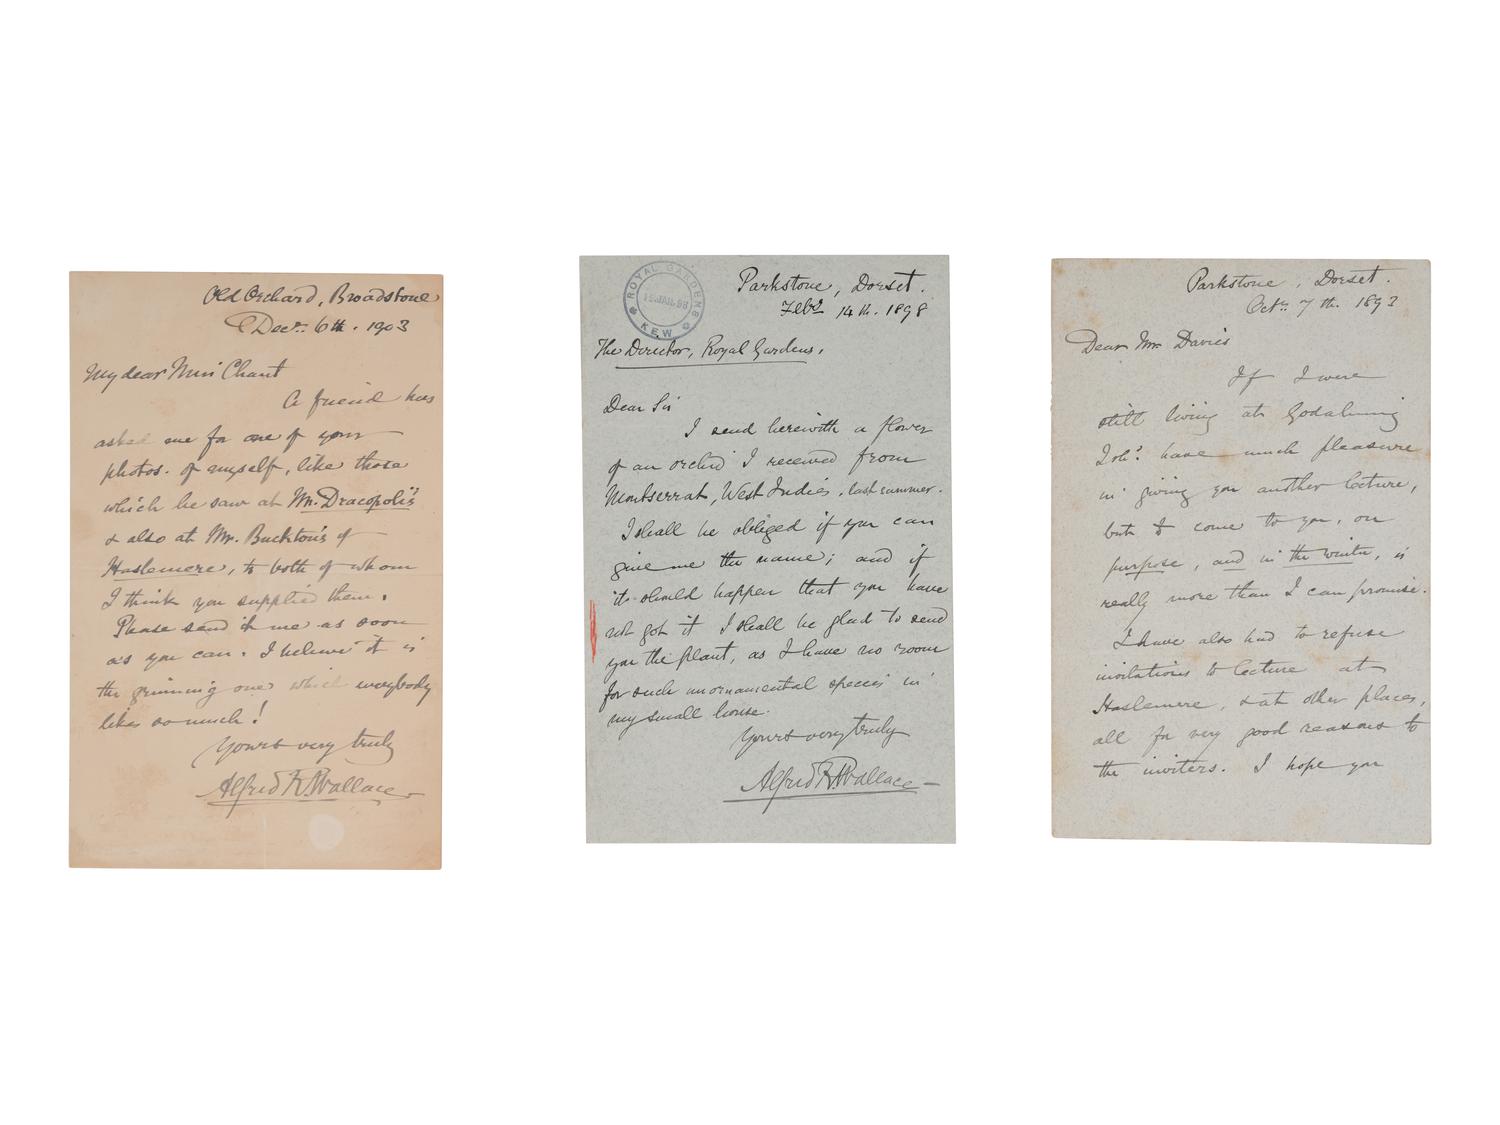 Old Orchard, Broadstone
Decr. 6th. 1903
My dear Miss Chant
A friend has
asked me for one of your
photos. of myself, like those
which he saw at Mr. Dracopoli's
& also at Mr. Buckton's of
Haslemere, to both of whom
I think you supplied them.
Please send it me as soon
as you can. I believe it is
the grinning one which everybody
likes so much!
Yours very truly
Alfred R. Wallace
ROYAL GARDENS
KEW
Parkstone, Dorset.
14th. 1898
The Director, Royal Gardens,
Dear Sir
I send herewith a flower
of an orchid I received from
Montserrat, West Indies, last summer.
I shall be obliged if you can
give me the name; and if
it should happen that you have
not got it I shall be glad to send
you the plant, as I have no room
for such unornamental species in
my small house.
Yours very truly
Alfred R. Wallace
Parkstone, Dorset.
Octr. 7th. 1893
Dear Mr. Davis
If I were
still living at Godalming
I shd. have much pleasure
in giving you another lecture,
but to come to you, on
purpose, and in the winter, is
really more than I can promise.
I have also had to refuse
invitations to lecture at
Haslemere, & at other places,
all for very good reasons to
the inviters. I hope you